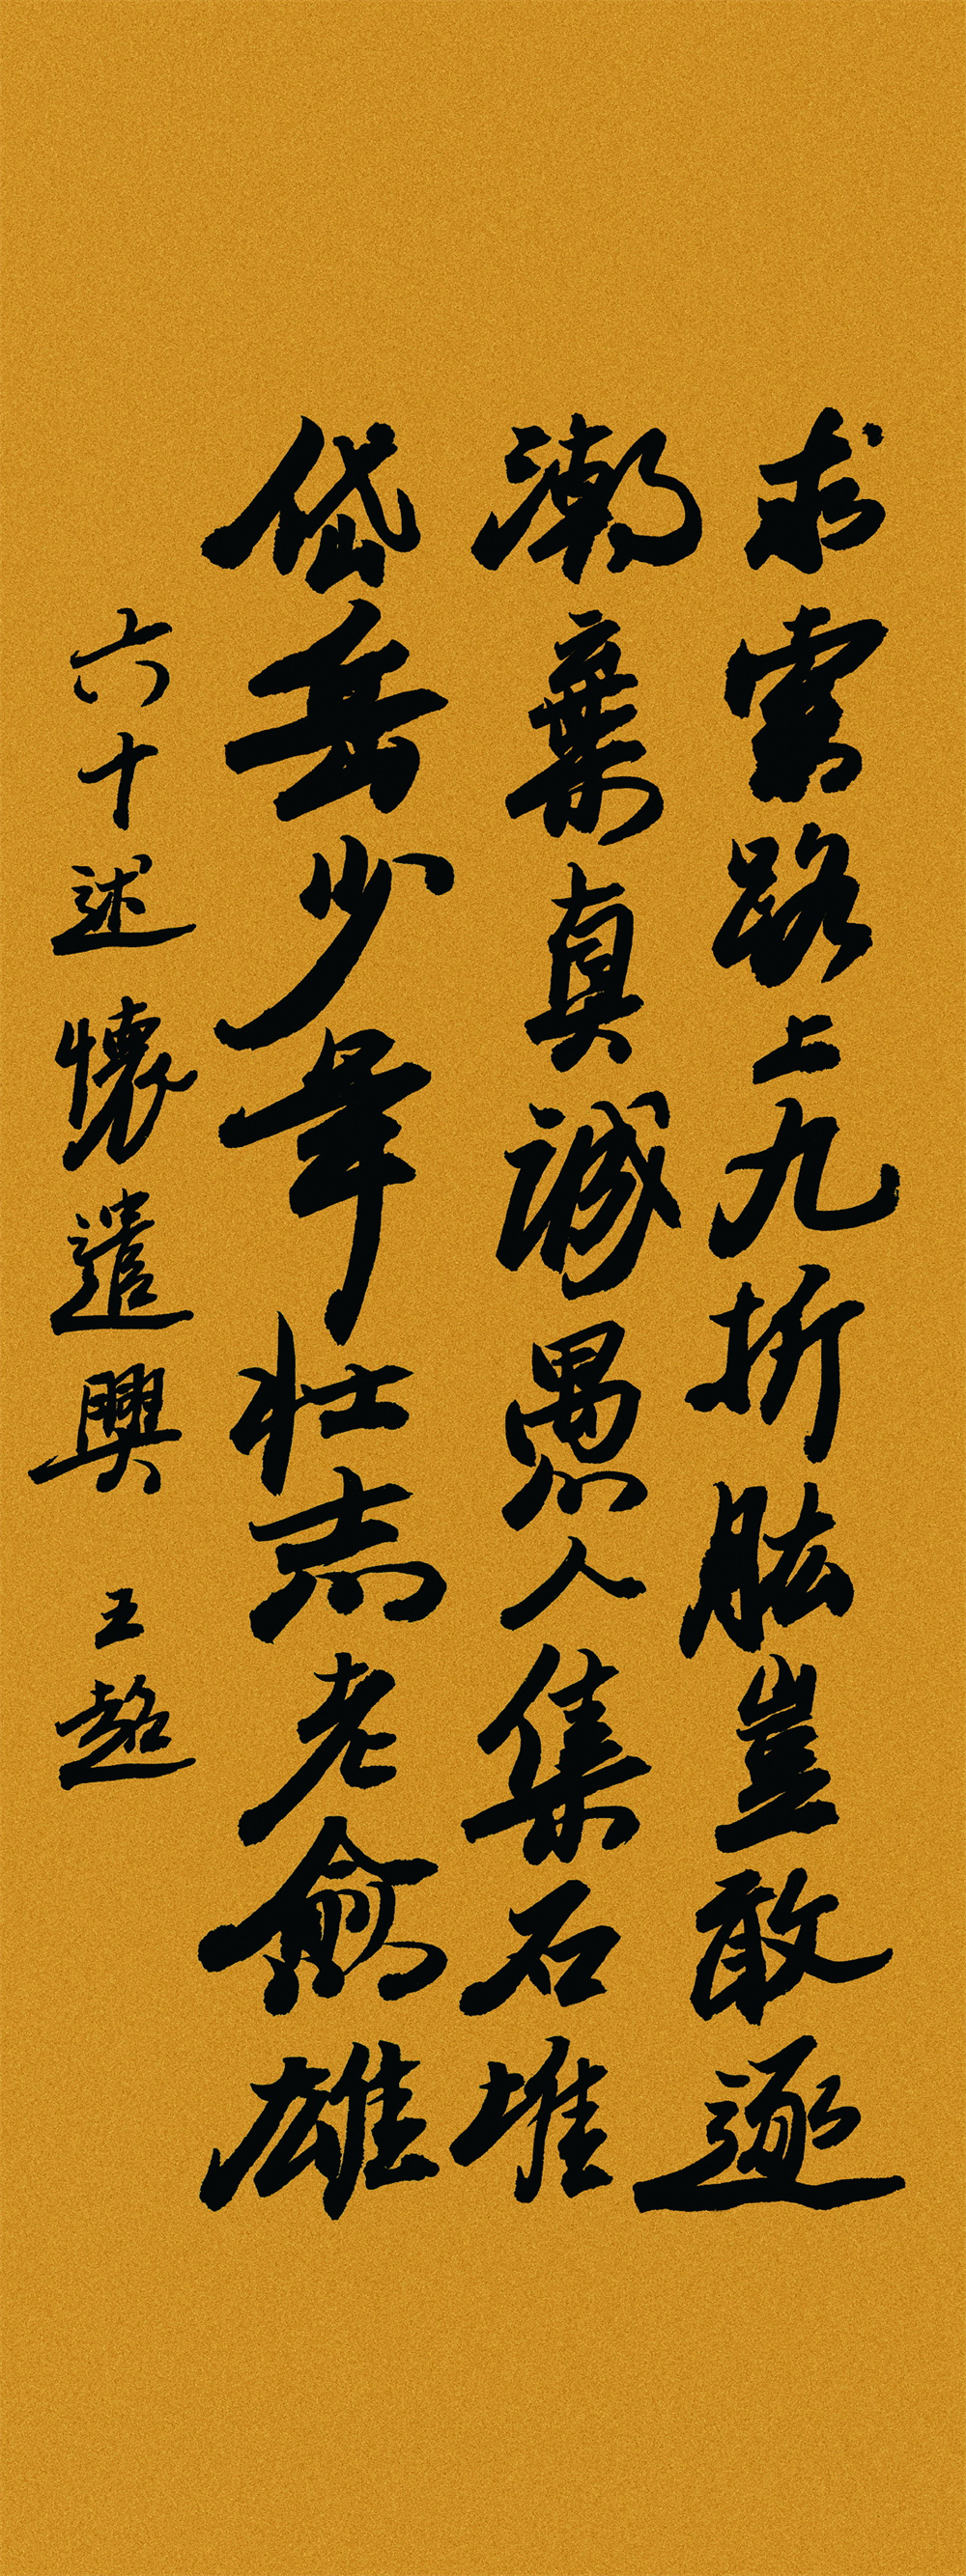 求索路上九折肱豈敢逐
潮棄真誠愚人集石堆
岱岳少年壯志老愈雄
六十述懷遣興 王超